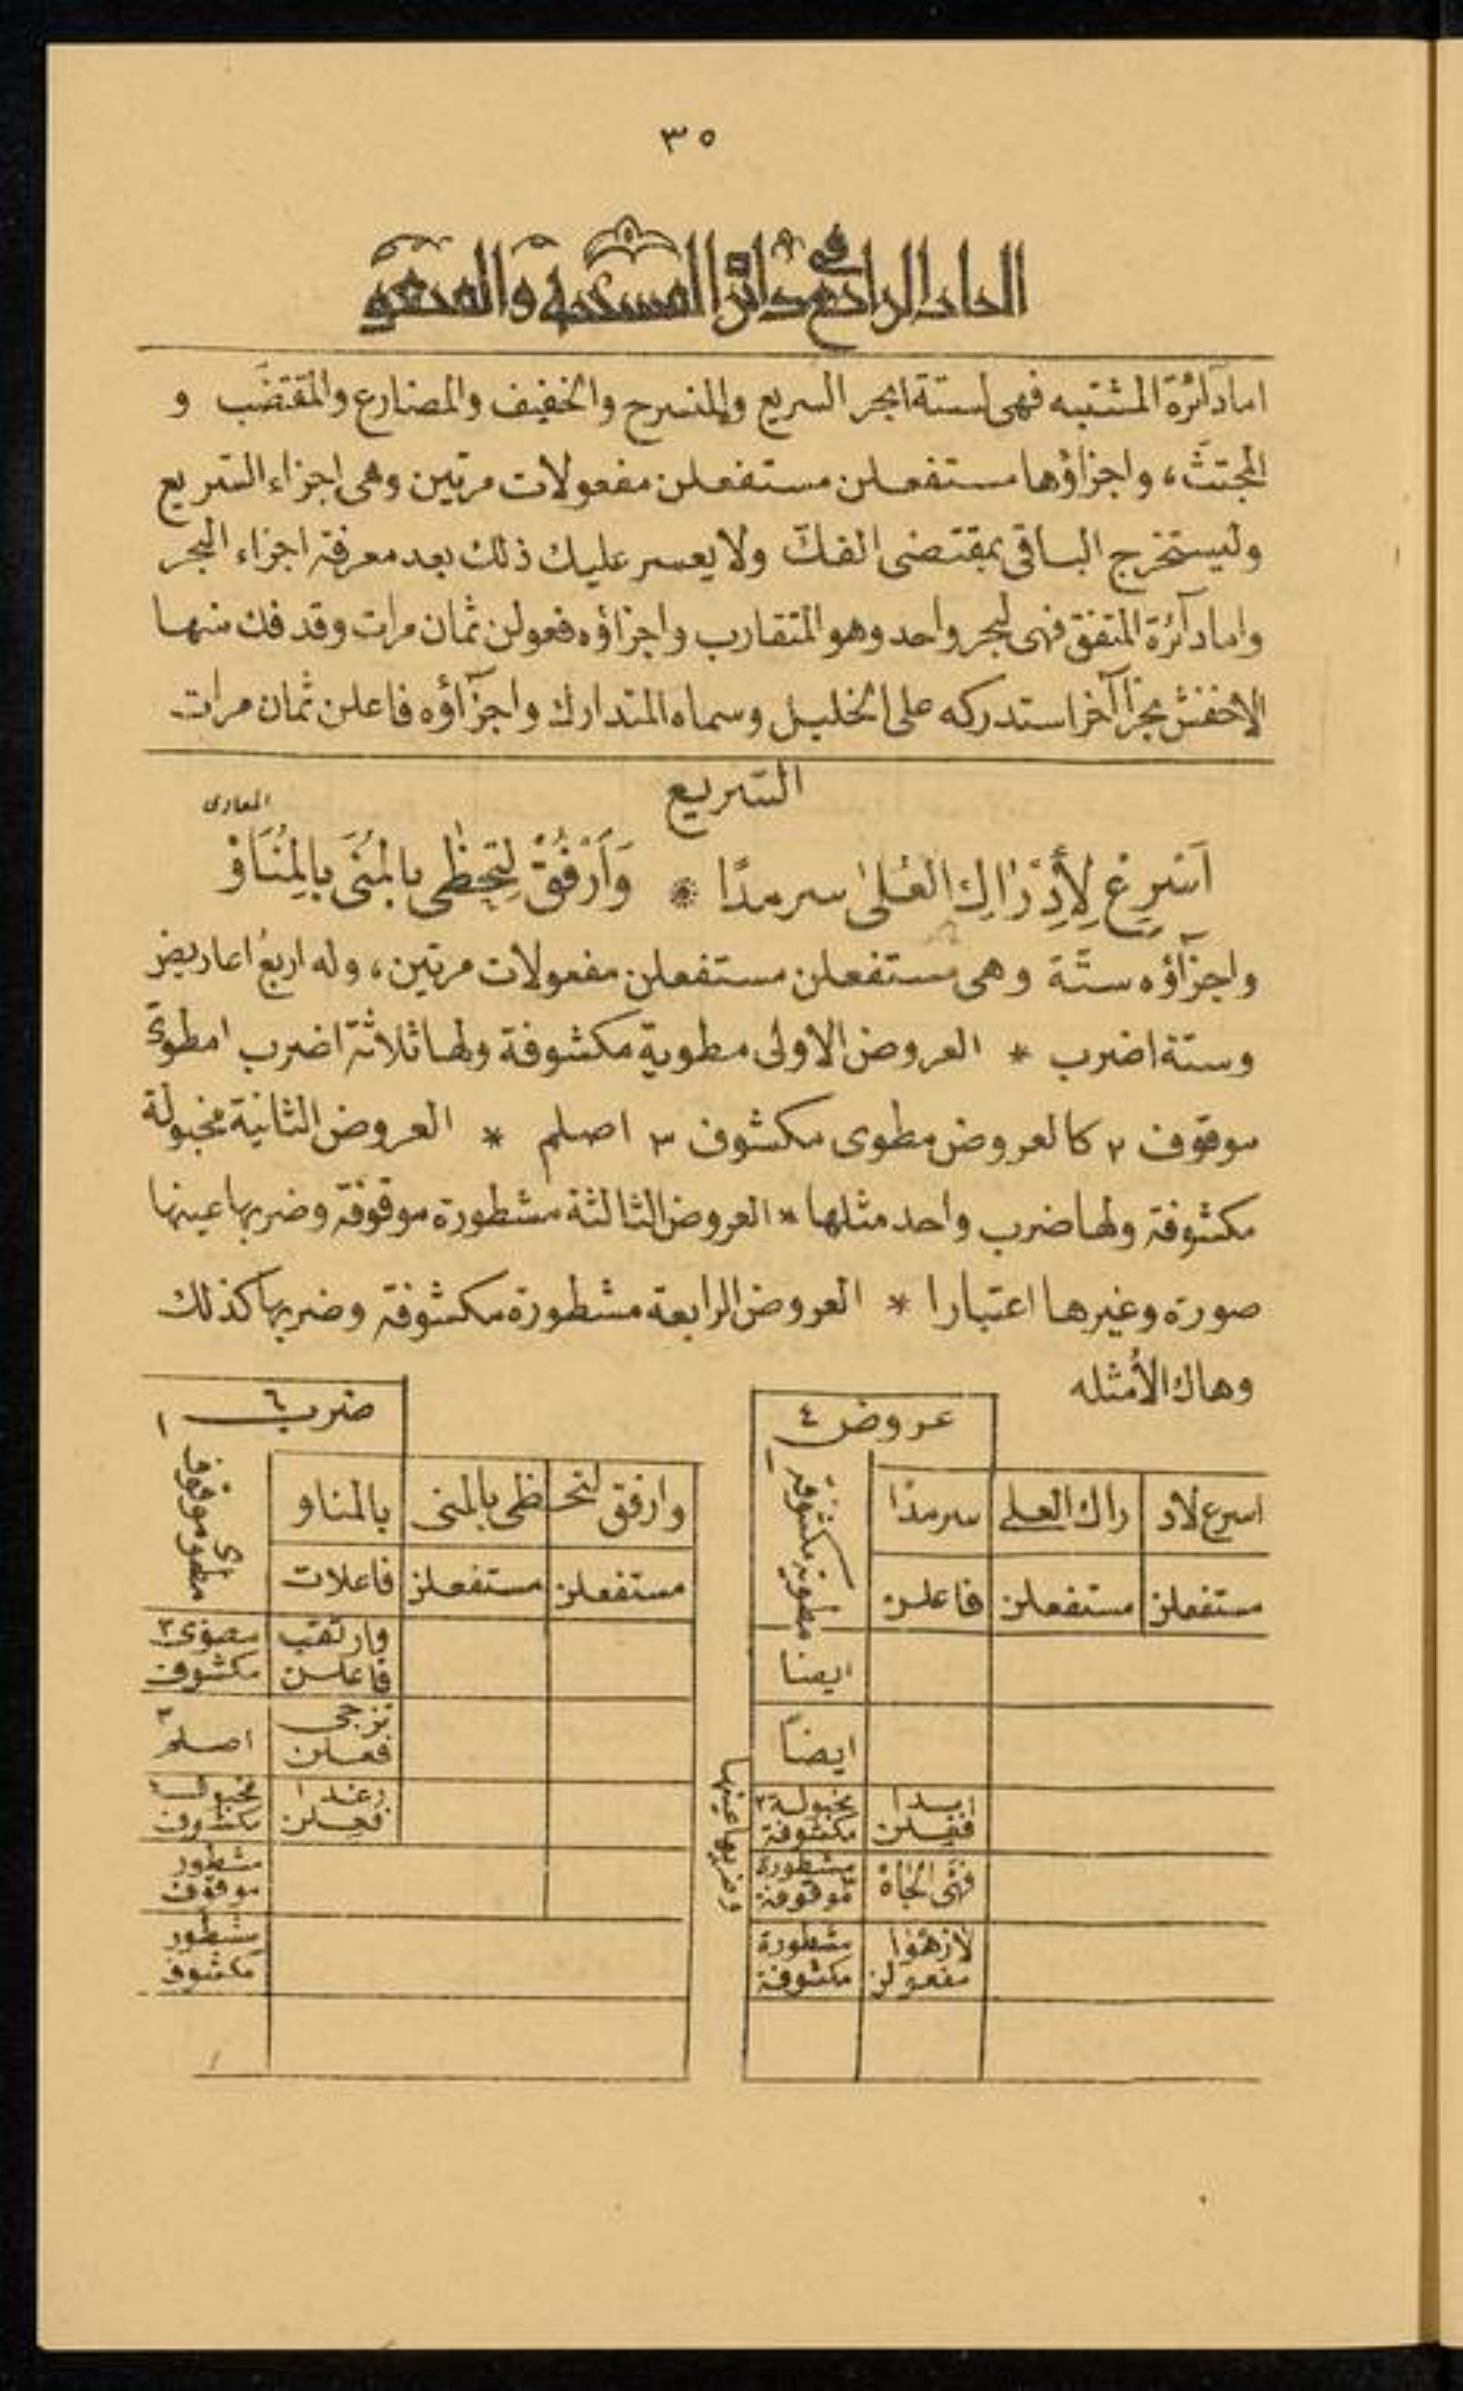 ٣٥
الباب الرابع في دائرة المشتبه والمتفق
اما دآئرة المشتبه فهى لستة ابحر السريع والمنسرح والخفيف والمضارع والمقتضَب و
المجتثّ، واجزاؤها مستفعلن مستفعلن مفعولات مرتين وهى اجزاء السّريع
وليستخرج الباقى بمقتضى الفكّ ولا يعسر عليك ذلك بعد معرفة اجزاء البحر
واما دآئرة المتفق فهى لبحر واحد وهو المتقارب واجزاؤه فعولن ثمان مرات وقد فك منها
الاخفش بحرا آخر استدركه على الخليل وسماه المتدارك واجزآؤه فاعلن ثمان مرات
السّريع
اَسْرِعْ لِأَدْرَاكِ العُلىٰ سرمدًا * وَاَرْفُقْ لِتَحظىٰ بالمُنَى بالِمُنَاوْ
المعادى
واجزآؤه ستّة وهى مستفعلن مستفعلن مفعولات مرتين، وله اربع اعاريض
وستة اضرب * العروض الاولى مطوية مكشوفة ولها ثلاثة اضرب ١ مطوىّ
موقوف ٢ كالعروض مطوى مكشوف ٣ اصلم * العروض الثانية مخبولة
مكشوفة ولها ضرب واحد مثلها * العروض الثالثة مشطورة موقوفة وضربها عينها
صورة وغيرها اعتبارا * العروض الرابعة مشطورة مكشوفة وضربها كذلك
وهاك الأمثله
عروض ٤
اسرع لاد راك العلى سرمدًا مطوية مكشوفة ١
مستفعلن مستفعلن فاعلن
ايضا
ايضاً
ابدا مخبولة ٢
فعلن مكشوفة
مشطورة
موقوفة
مشطورة
مفعولن مكشوفة
وضربها عينها
ضرب ٦
وارفق لتحـ ـظى بالمنى بالمناو مطوى موقوف ١
مستفعلن مستفعلن فاعلات
وارتقب مطوى ٢
فاعلن مكشوف
اصلم ٣
فعلن
رغدا مخبول
فعلن مكشوف
مشطور
موقوف
مشطور
مكشوف